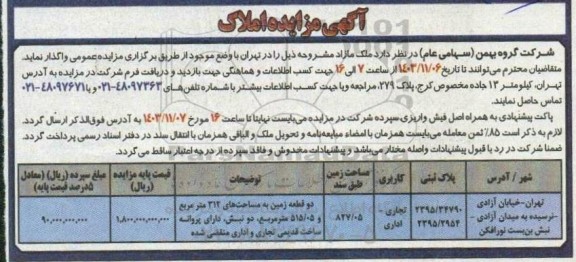 آگهی مزایده املاک
شرکت گروه بهمن (سهامی عام) در نظر دارد ملک مازاد مشروحه ذیل را در تهران با وضع موجود از طریق برگزاری مزایده عمومی واگذار نماید.
متقاضیان محترم می‌توانند تا تاریخ ۱۴۰۳/۱۱/۰۶ از ساعت ۷ الی ۱۶ جهت کسب اطلاعات و هماهنگی جهت بازدید و دریافت فرم شرکت در مزایده به آدرس
تهران، کیلومتر ۱۳ جاده مخصوص کرج، پلاک ۲۷۹ مراجعه و یا جهت کسب اطلاعات بیشتر با شماره تلفن‌های ۴۸۰۹۷۳۶۳-۰۲۱ و یا ۴۸۰۹۷۶۷۱-۰۲۱
تماس حاصل نمایند.
پاکت پیشنهادی به همراه اصل فیش واریزی سپرده شرکت در مزایده می‌بایست نهایتا تا ساعت ۱۶ مورخ ۱۴۰۳/۱۱/۰۷ به آدرس فوق‌الذکر ارسال گردد.
لازم به ذکر است ۸۵٪ ثمن معامله می‌بایست همزمان با امضاء مبایعه‌نامه و تحویل ملک و الباقی همزمان با انتقال سند در دفتر اسناد رسمی پرداخت گردد.
ضمنا شرکت در رد یا قبول پیشنهادات واصله مختار می‌باشد و پیشنهادات مخدوش و فاقد سپرده از درجه اعتبار ساقط می‌گردد.
شهر / آدرس پلاک ثبتی کاربری مساحت زمین طبق سند توضیحات قیمت پایه مزایده (ریال) مبلغ سپرده (ریال) (معادل ۵درصد قیمت پایه)
تهران-خیابان آزادی -نرسیده به میدان آزادی - نبش بن‌بست نورافکن ۲۳۹۵/۳۴۷۹۰ ۲۳۹۵/۲۹۵۴ تجاری - اداری ۸۲۷/۰۵ دو قطعه زمین به مساحت‌های ۳۱۲ متر مربع و ۵۱۵/۰۵ مترمربع، دو نبش، دارای پروانه ساخت قدیمی تجاری و اداری منقضی شده ۱.۸۰۰.۰۰۰.۰۰۰.۰۰۰ ۹۰.۰۰۰.۰۰۰.۰۰۰